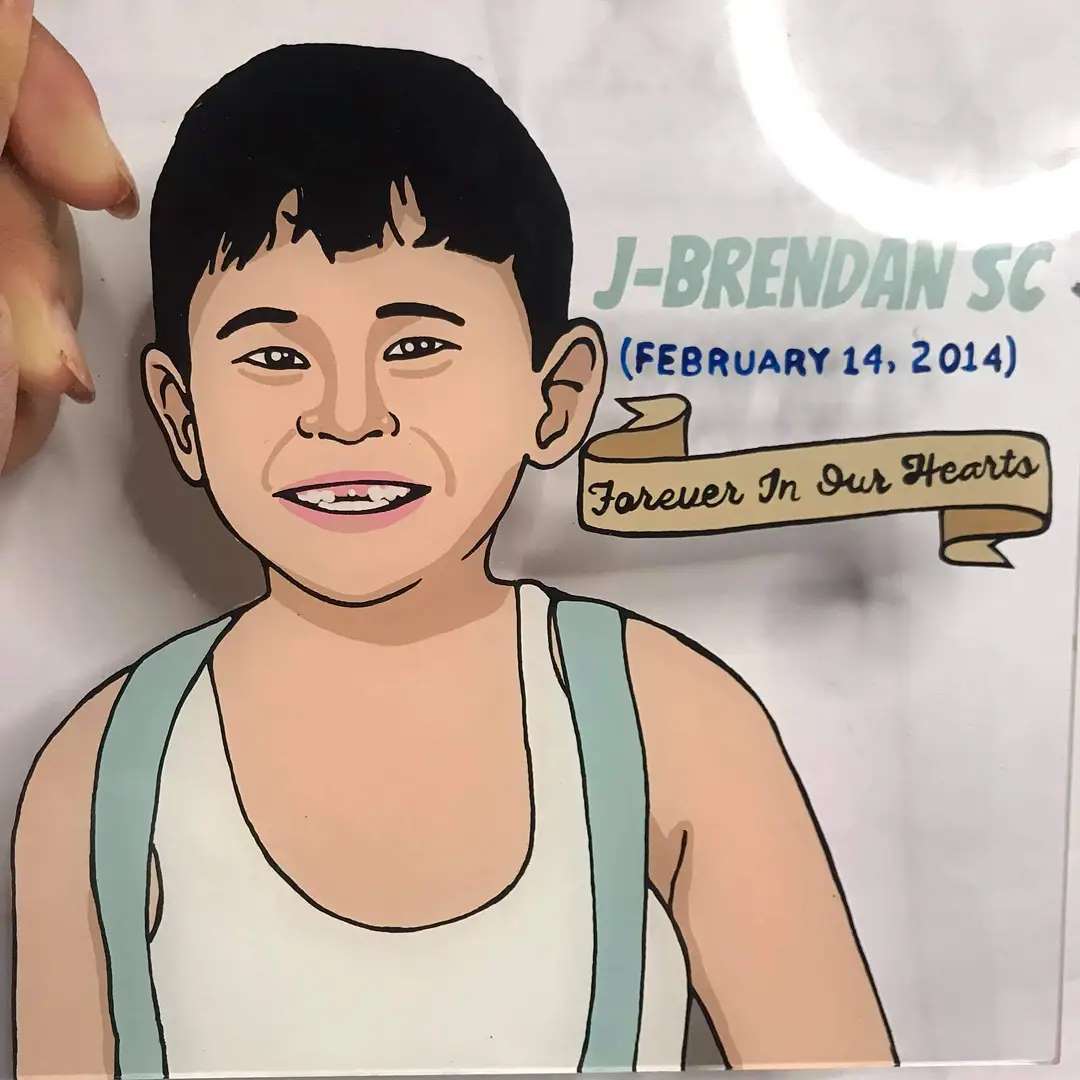 J-BRENDAN SC
(FEBRUARY 14, 2014)
Forever In Our Hearts